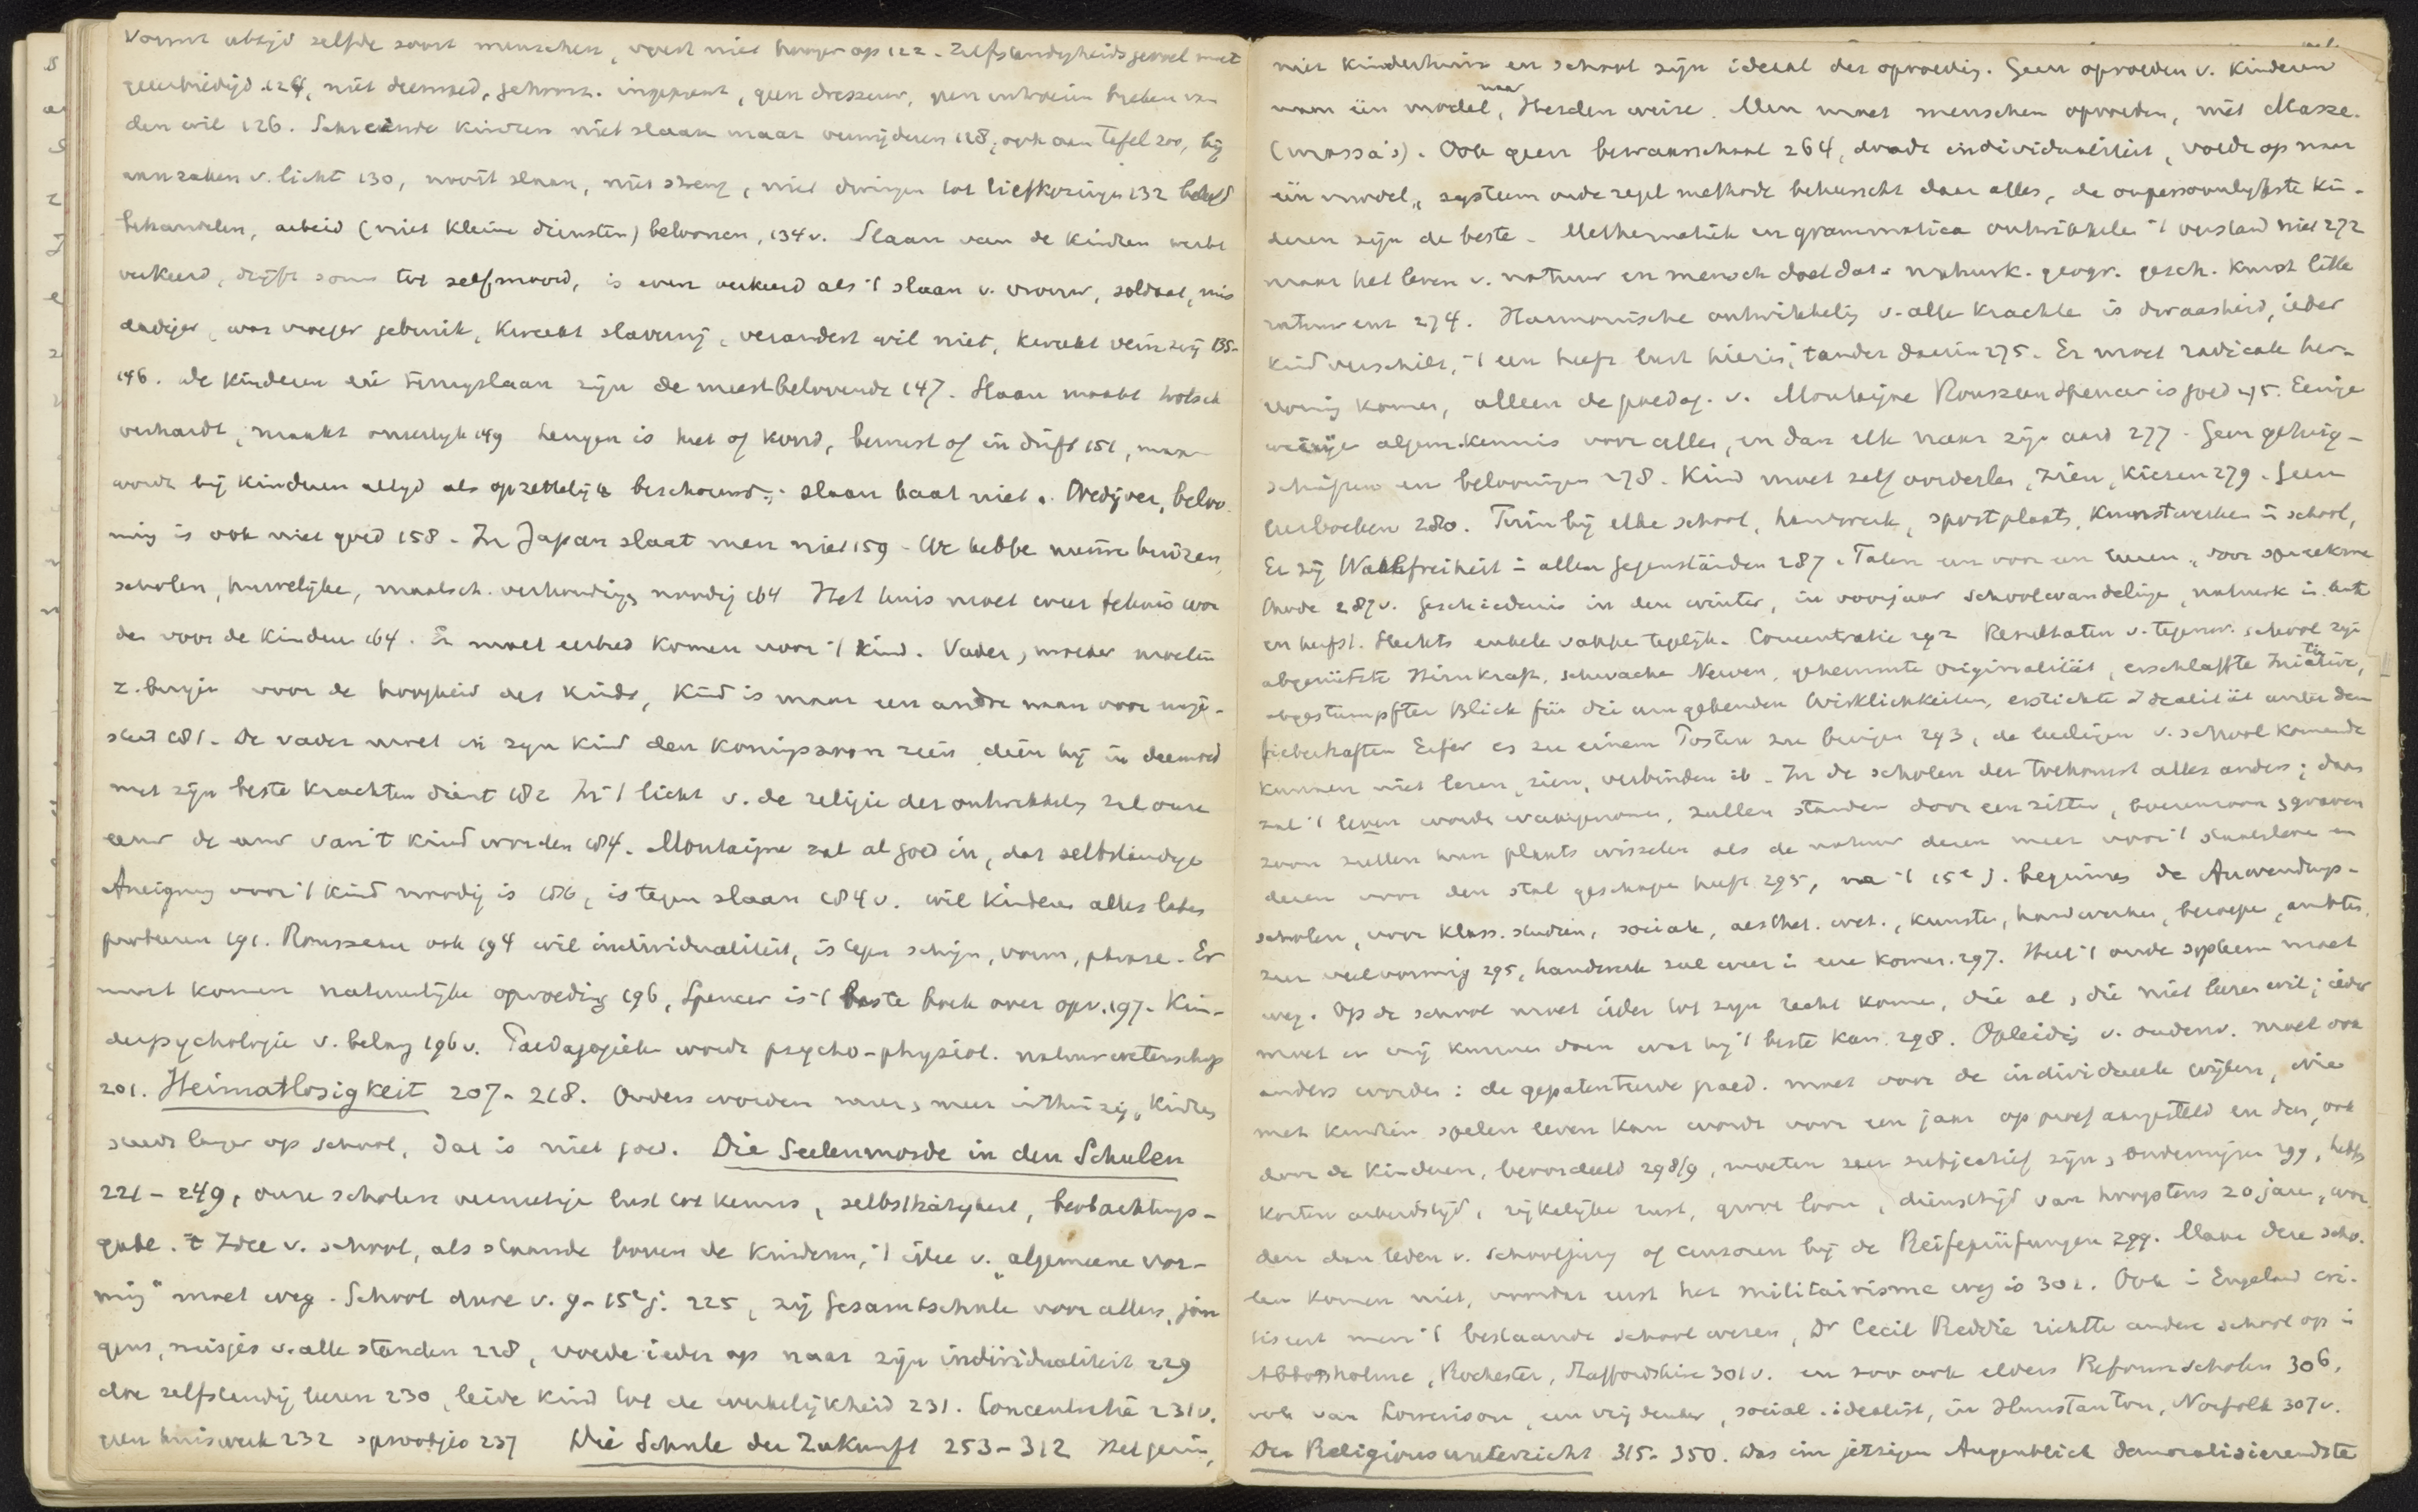 Vormt altijd zelfde soort menschen, voert niet hooger op 122. Zelfstandigheidsgevoel moet
geëerbiedigd 124, niet deemoed, gehoorz. ingeprent, geen dressuur, geen breken van
den wil 126. Schreiende kinderen niet slaan maar verwijderen 128, ook aan tafel 200, bij
aanraken v. licht 130, nooit slaan, niet streng, niet dwingen tot liefkozingen 132 beleefd
behandelen, arbeid (niet kleine diensten) beloonen, 134 v. Slaan van de kinderen werkt
verkeerd, drijft soms tot zelfmoord, is even verkeerd als 't slaan v. vrouw, soldaat, mis
dadiger, was vroeger gebruik, kweekt slavernij, verandert wil niet, kweekt veinzerij 135-
146. de kinderen die terugslaan zijn de meestbelovende 147. Slaan maakt valsch
verhardt, maakt oneerlyk 149 Leugen is heet of koud, bewust of in drift 151, maar
wordt bij kinderen altyd als opzettelijk beschouwd; slaan baat niet. Wedijver, beloo
ning is ook niet goed 158. In Japan slaat men niet 159. We hebbe nieuwe huizen,
scholen, huwelijke, maatsch. verhoudinge noodig 164 Het huis moet weer tehuis wor
den voor de kinderen 164. Er moet eerbied komen voor 't kind. Vader, moeder moeten
z. buigen voor de hoogheid des kinds, Kind is maar een andre naam voor maje-
steit 181. De vader moet in zyn kind den koningszoon zien dien hij in deemoed
met zijn beste krachten dient 182 In 't licht v. de religie der ontwikkeling zal onze
eeuw de eeuw van 't kind worden 184. Montaigne zat al goed in, dat selbständige
Aneignung voor 't kind noodig is 186, is tegen slaan 184 v. wil kinderen alles laten
probeeren 191. Rousseau ook 194 wil individualiteit, is tegen schijn, vorm, phrase. Er
moet komen natuurlijke opvoeding 196, Spencer is 't beste boek over opv. 197. Kin-
derpsychologie v. belang 196 v. Paedagogiek wordt psycho-physiol. natuurwetenschap
201. Heimatlosigkeit 207-218. Ouders worden meer, meer uithuizig, kinderen
steeds langer op school, dat is niet goed. Die Seelenmorde in den Schulen
221-249, onze scholen vernietige lust tot kennis, selbsttätigkeit, beobachtungs-
gabe. 't Idee v. school, als staande boven de kinderen, 't idee v. „algemeene vor-
ming" moet weg. School dure v. 9-15e j. 225, zij Gesamtschule voor allen, jon
gens, meisjes v. alle standen 228, voede ieder op naar zijn individualiteit 229
doe zelfstandig leeren 230, leide kind tot de werkelijkheid 231. Concentratie 231 v.
geen huiswerk 232 sprookjes 237 Die Schule der Zukunft 253-312 Het gezin,
niet kinderhuis en school zijn ideaal der opvoeding. Geen opvoeden v. kinderen
naar één model, naar Herden weise. Men moet menschen opvoeden, niet Masse.
(massa's). Ook geen bewaarschool 264, doode individualiteit, voede op naar
één model, systeem orde regel methode beheerscht daar alles, de onpersoonlijkste kin-
deren zijn de beste. Mathematiek en grammatica ontwikkelen 't verstand niet 272
maar het leven v. natuur en mensch doet dat: natuurk. geogr. gesch. kunst litte
ratuur enz 274. Harmonische ontwikkeling v. alle krachte is dwaasheid, ieder
kind verschilt, 't een heeft lust hierin, t ander daarin 275. Er moet radicale her-
vorming komen, alleen de paedag. v. Montaigne Rousseau Spencer is goed 275. Eenige
weinige algem. kennis voor alles, en dan elk naar zijn aard 277. Geen getuig-
schriften en belooningen 278. Kind moet zelf oordeelen, zien, kiezen 279. Geen
leerboeken 280. Tuin bij elke school, handwerk, sportplaats, kunstwerken in school,
Er zij Wahlfreiheit in allen Gegenständen 287. Talen een voor een leeren, door spreekme
thode 287 v. Geschiedenis in den winter, in voorjaar schoolwandelinge, natuurk in lente
en herfst. Slechts enkele vakke tegelijk. Concentratie 292 Resultaten v. tegenw. school zijn
abgenützte Hirnkraft, schwache Nerven, gehemmte originalität, erschlaffte Initiative,
abgestumpfter Blick für die umgebenden Wirklichkeiten, erstickte Idealität unter dem
fieberhaften Eifer es zu einem Posten zu bringen 293, de leerlingen v. school komende
kunnen niet lezen, zien, verbinden ib. In de scholen der toekomst alles anders; daar
zal 't leven worde waargenomen, zullen standen door een zitten, boerenzoon, graven
zoon zullen hun plaats wisselen als de natuur dezen meer voor 't studeeren en
dezen voor den stal geschapen heeft 295, na 't 15e j. beginnen de Anwendungs-
scholen, voor klass. studiën, sociale, aesthet. wet., kunsten, handwerken, beroepe, ambten,
zeer veelvormig 295, handwerk zal weer in eere komen 297. Heel 't oude systeem moet
weg. Op de school moet ieder tot zyn recht komen, die al, die niet leeren wil; ieder
moet er vrij kunnen doen wat hij 't beste kan 298. Opleiding v. onderw. moet ook
anders worden: de gepatenteerde paed. moet voor de individueele wijken, wie
met kinderen spelen leven kan wordt voor een jaar op proef aangesteld en dan, ook
door de kinderen, beoordeeld 298/9, moeten zeer subjectief zijn, 299, hebben
korten arbeidstijd, rijkelijke rust, groot loon, diensttijd van hoogstens 20 jaar, wor
den dan leden v. schooljury of censoren bij de Reifeprüfungen 299. Maar deze scho-
len komen niet, voordat eerst het militairisme weg is 302. Ook in Engeland cri-
tiseert men 't bestaande schoolwezen, Dr Cecil Reddie richtte andere school op in
Abbotsholme, Rochester, Staffordshire 301 v. en zoo ook elders Reformscholen 306,
ook van Lowerison, een vrijdenker, social. idealist, in Hunstanton, Norfolk 307 v.
Der Religionsunterricht 315-350. Das im jetzigen Augenblick demoralisierendste